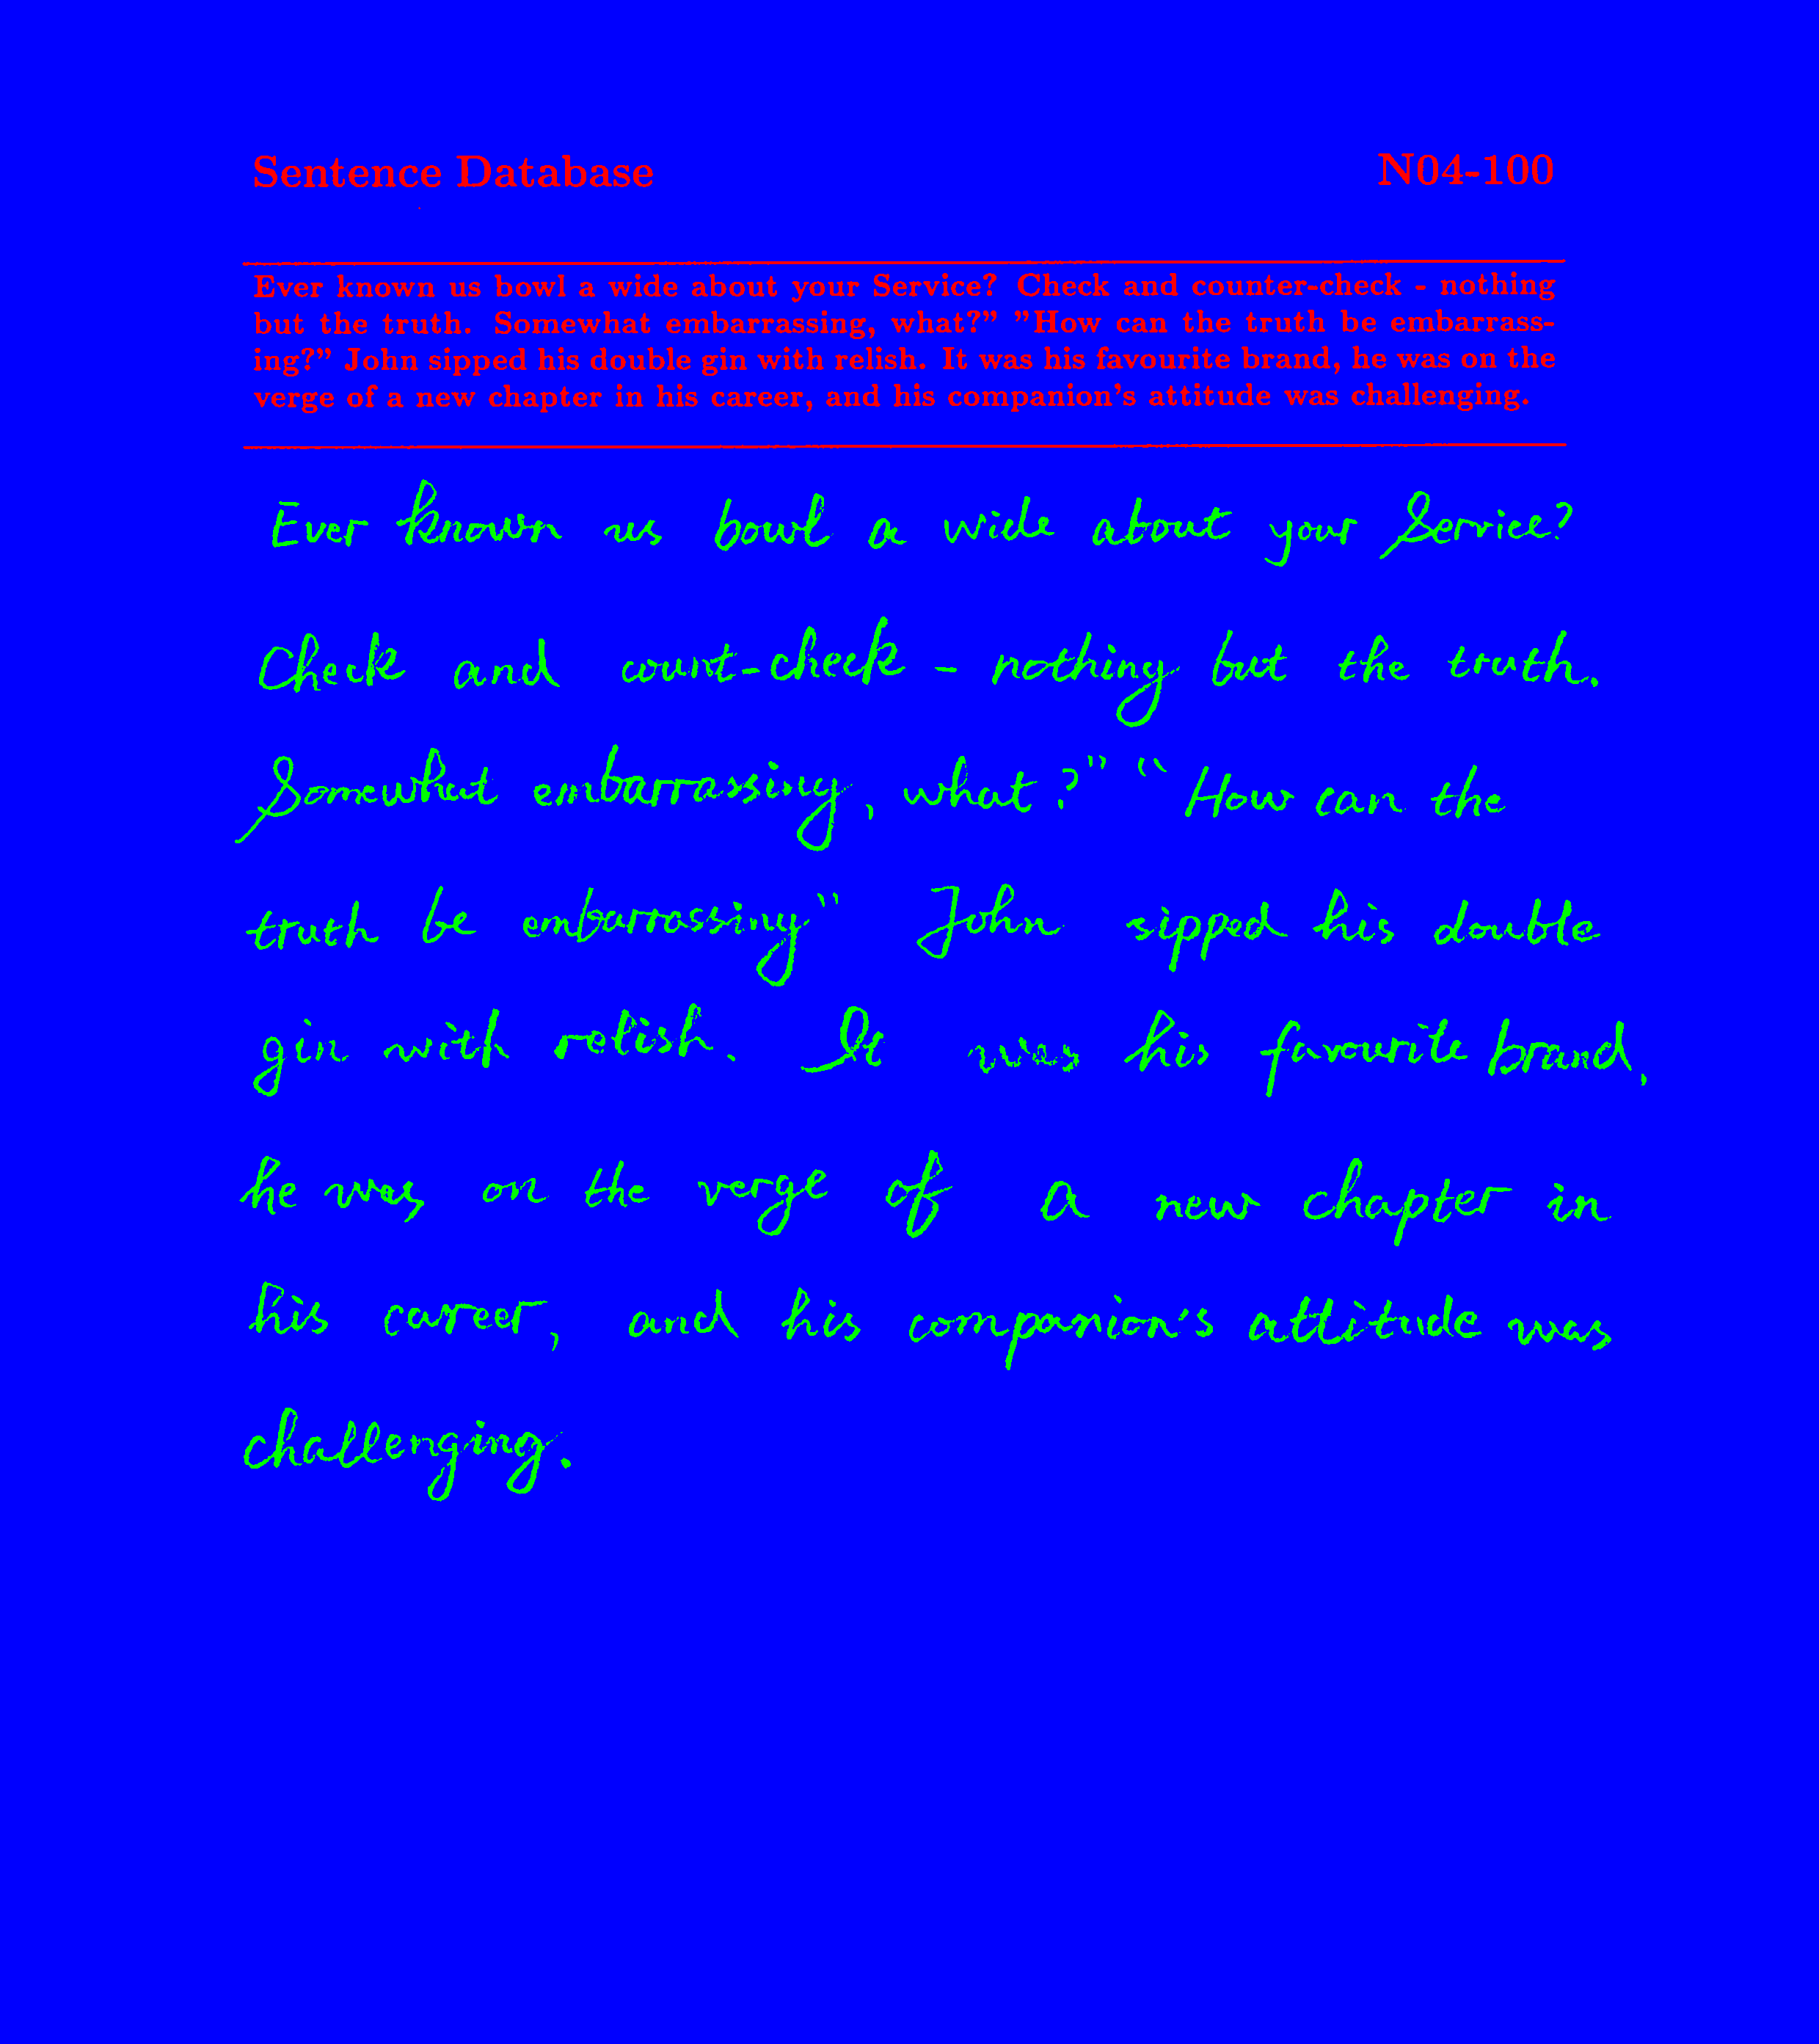 Sentence Database N04-100
Ever known us bowl a wide about your Service? Check and counter-check - nothing
but the truth. Somewhat embarrassing, what?" "How can the truth be embarrass-
ing?" John sipped his double gin with relish. It was his favourite brand, he was on the
verge of a new chapter in his career, and his companion's attitude was challenging.
Ever known us bowl a wide about your Service?
Check and count-check - nothing but the truth.
Somewhat embarrassing, what?" "How can the
truth be embarrassing" John sipped his double
gin with relish. It was his favourite brand,
he was on the verge of a new chapter in
his career, and his companion's attitude was
challenging.